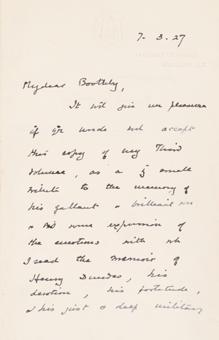 7. 3. 27
My dear Boothby,
It will give me pleasure
if you would not accept
this copy of my Third
Volume, as a small
tribute to the memory of
his gallant & brilliant
expression of
the emotions with wh
I read the Memoir of
Henry Dundas, his
devotion, his fortitude,
& his just & deep military